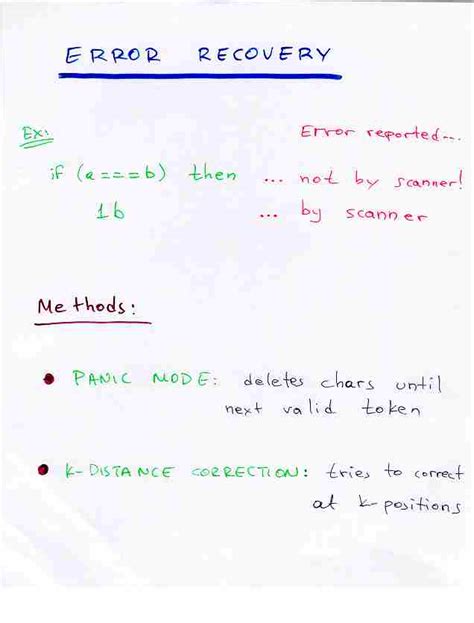 ERROR RECOVERY
Ex:
Error reported...
if (a===b) then ... not by scanner!
1b ... by scanner
Methods:
• PANIC MODE: deletes chars until
next valid token
• K-DISTANCE CORRECTION: tries to correct
at k-positions